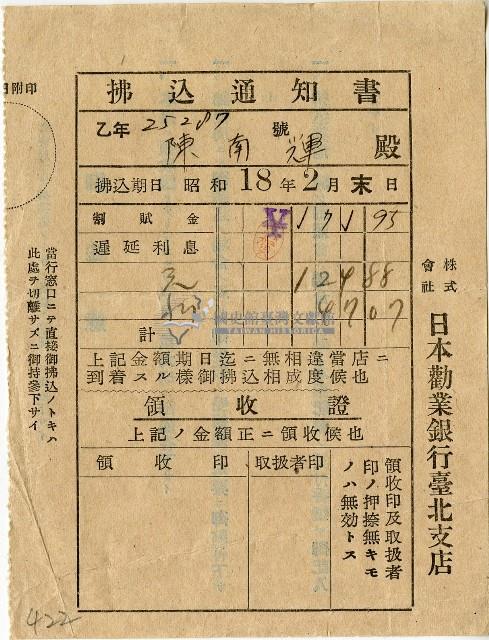 拂込通知書
乙年 25287 號
陳南輝 殿
拂込期日 昭和 18年2月末日
割賦金 ¥171 95
遲延利息
元 124 88
47 07
計
上記金額期日迄ニ無相違當店ニ
到着スル樣御拂込相成度候也
領收證
上記ノ金額正ニ領收候也
領收印
取扱者印
領收印及取扱者
印ノ押捺無キモ
ノハ無効トス
株式會社 日本勸業銀行臺北支店
日附印
當行窓口ニテ直接御拂込ノトキハ
此處テ切離サズニ御持參下サイ
國史館臺灣文獻館
TAIWAN HISTORICA
422